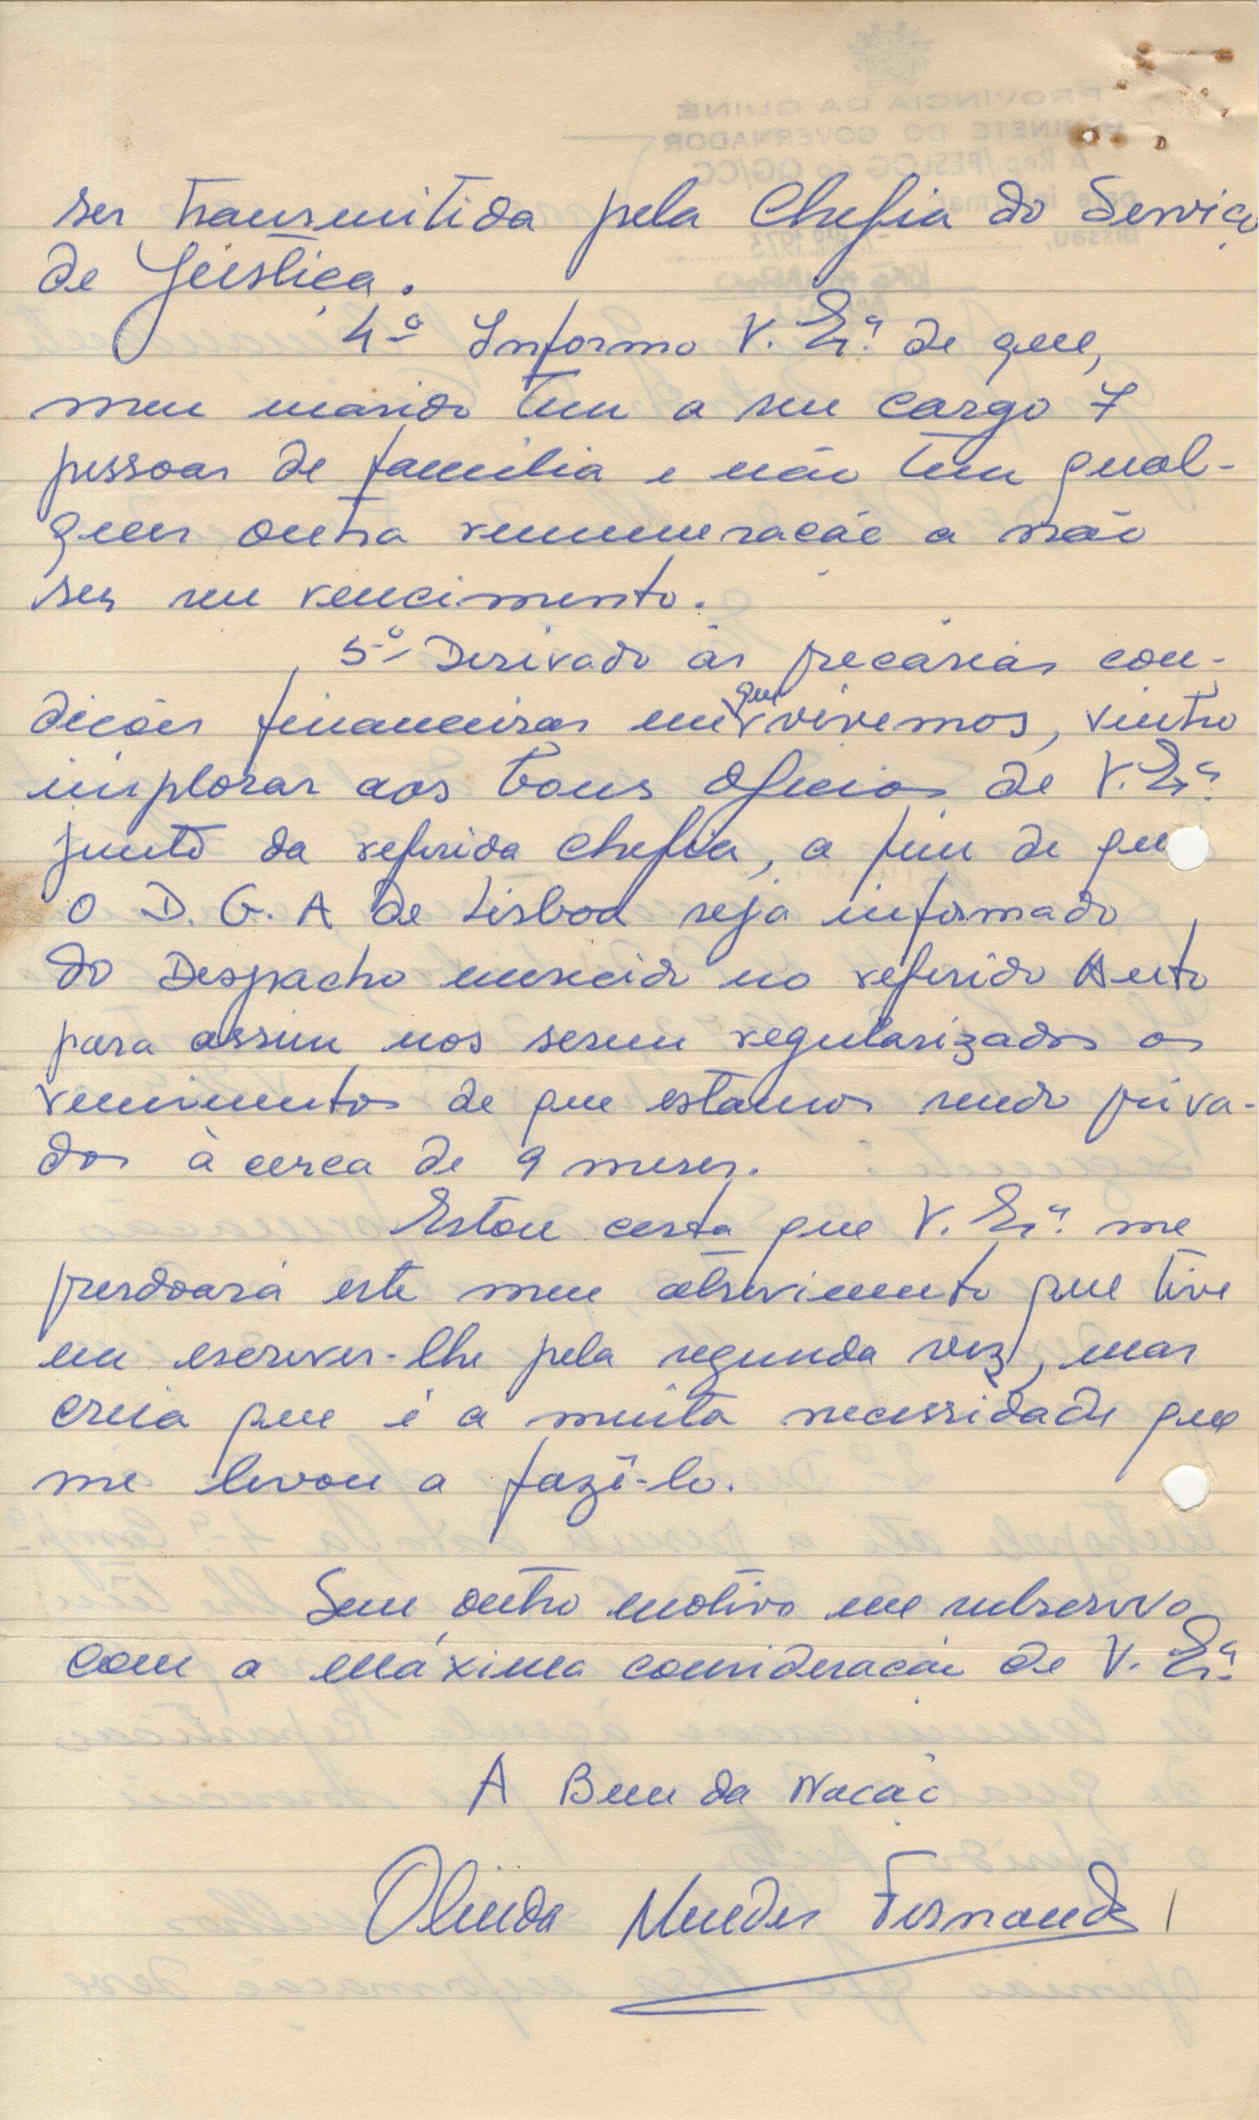 ser transmitida pela Chefia do Serviço
de Justiça.
4º Informo V. Exª. de que,
meu marido tem a seu cargo 7
pessoas de família e não tem qual-
quer outra remuneração a não
ser seu vencimento.
5º Derivado às precárias con-
dições financeiras em que vivemos, venho
implorar aos bons ofícios de V. Exª.
junto da referida Chefia, a fim de que
o D. G. A de Lisboa seja informado
do Despacho merecido no referido Auto
para assim nos serem regularizados os
vencimentos de que estamos sendo priva-
dos à cerca de 9 meses.
Estou certa que V. Exª. me
perdoará este meu atrevimento que tive
em escrever-lhe pela segunda vez, mas
creia que é a muita necessidade que
me levou a fazê-lo.
Sem outro motivo me subscrevo
com a máxima consideração de V. Exª.
A Bem da Nação
Olinda Mendes Fernandes
PROVINCIA DA GUINÉ
GABINETE DO GOVERNADOR
À Rep/PESLOG do QG/CC
para informar
Bissau, 1973